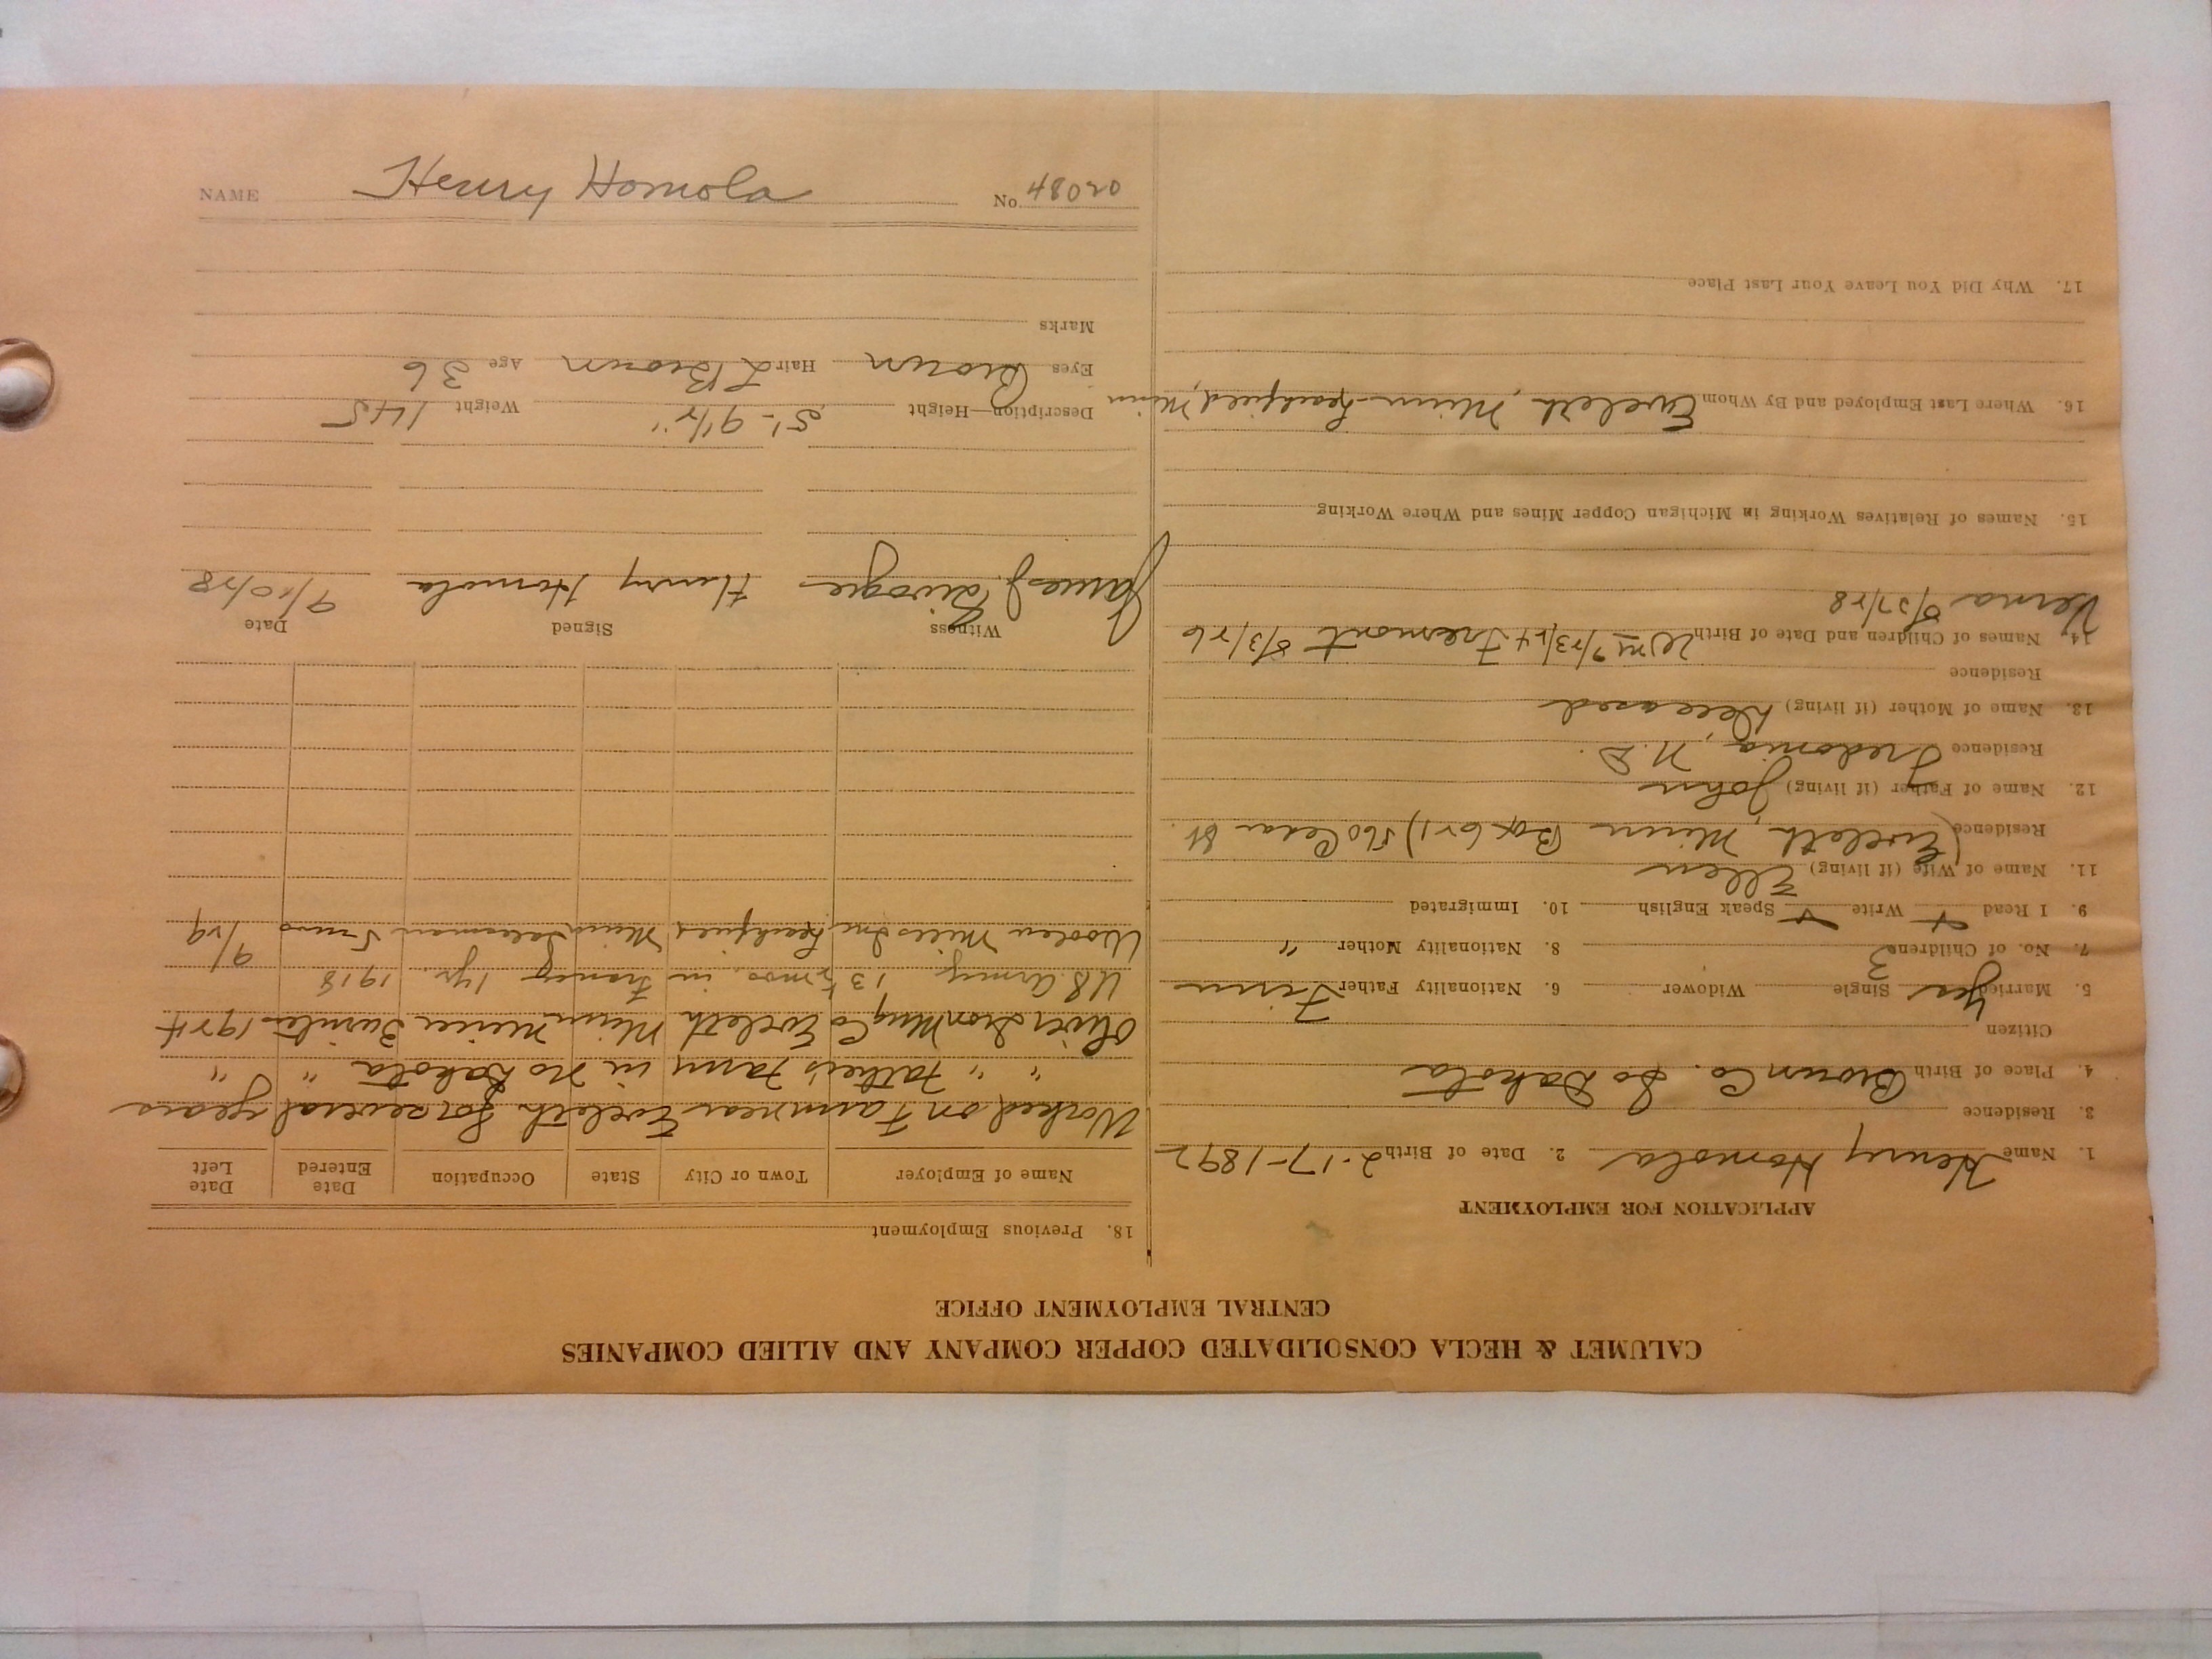 CALUMET & HECLA CONSOLIDATED COPPER COMPANY AND ALLIED COMPANIES
CENTRAL EMPLOYMENT OFFICE
APPLICATION FOR EMPLOYMENT
1. Name Henry Homola 2. Date of Birth 2-17-1892
3. Residence
4. Place of Birth Brown Co. So Dakota
Citizen
5. Married Yes Single Widower 6. Nationality Father Finn
7. No. of Children 3 8. Nationality Mother "
9. I Read Write Speak English 10. Immigrated
11. Name of Wife (if living) Ellen
Residence (Eveleth, Minn Box 621) 560 Cedar St.
12. Name of Father (if living) John
Residence Fredonia, N.D.
13. Name of Mother (if living) Deceased
Residence
14. Names of Children and Date of Birth Wm 9/23/24 Fremont 8/3/26
Verna 8/27/28
15. Names of Relatives Working in Michigan Copper Mines and Where Working
16. Where Last Employed and By Whom Eveleth, Minn Minn
17. Why Did You Leave Your Last Place
18. Previous Employment
Name of Employer Town or City State Occupation Date Entered Date Left
Worked on Farm near Eveleth for several years
" " Father's Farm in No Dakota " "
Oliver Iron Mng Co Eveleth Minn Miner 1924
U.S. Army 13½ mos. in France 1 yr. 1918
Woolen Mills Inc Minn Salesman 5 mos 9/29
Witness Signed Date
James J. Henry Homola 9/10/28
Description—Height 5'- 9½" Weight 145
Eyes Brown Hair L Brown Age 36
Marks
NAME Henry Homola No. 48020